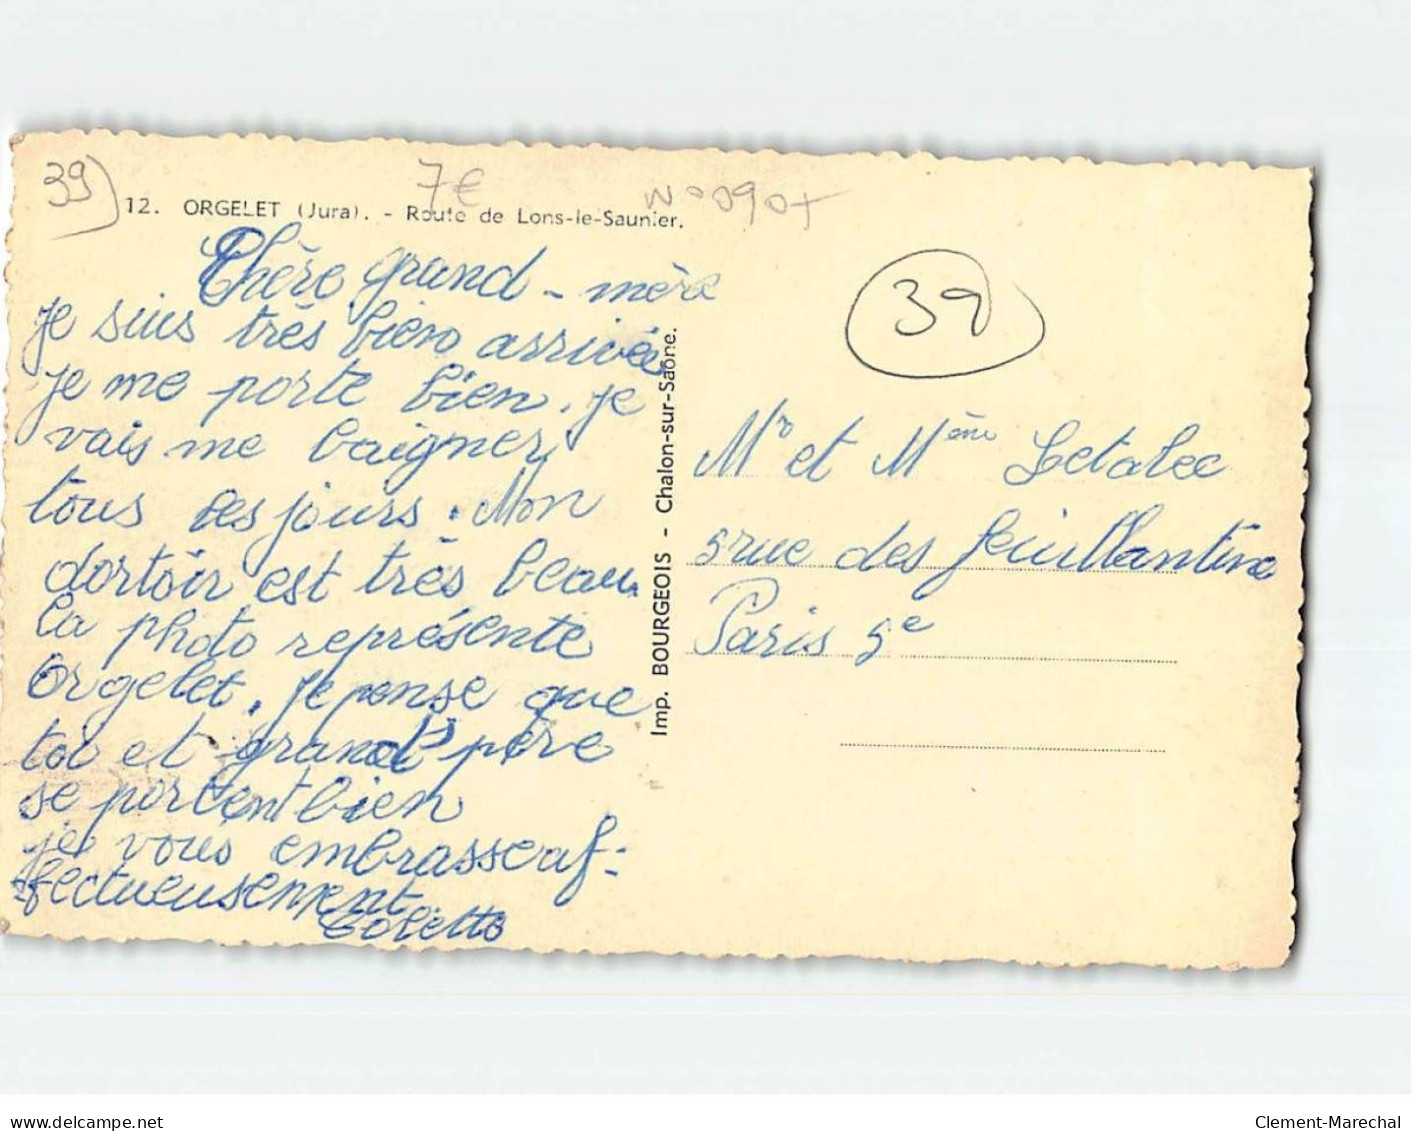 39)
7€
12. ORGELET (Jura). - Route de Lons-le-Saunier.
Chère grand-mère
je suis très bien arrivée
je me porte bien. je
vais me baigner
tous les jours. Mon
dortoir est très beau.
la photo représente
Orgelet. Je pense que
toi et grand père
se portent bien
je vous embrasse af-
fectueusement
Colette
Imp. BOURGEOIS - Chalon-sur-Saône.
39
Mr et Mme Letalec
5 rue des feuillantine
Paris 5e
www.delcampe.net
Clement-Marechal